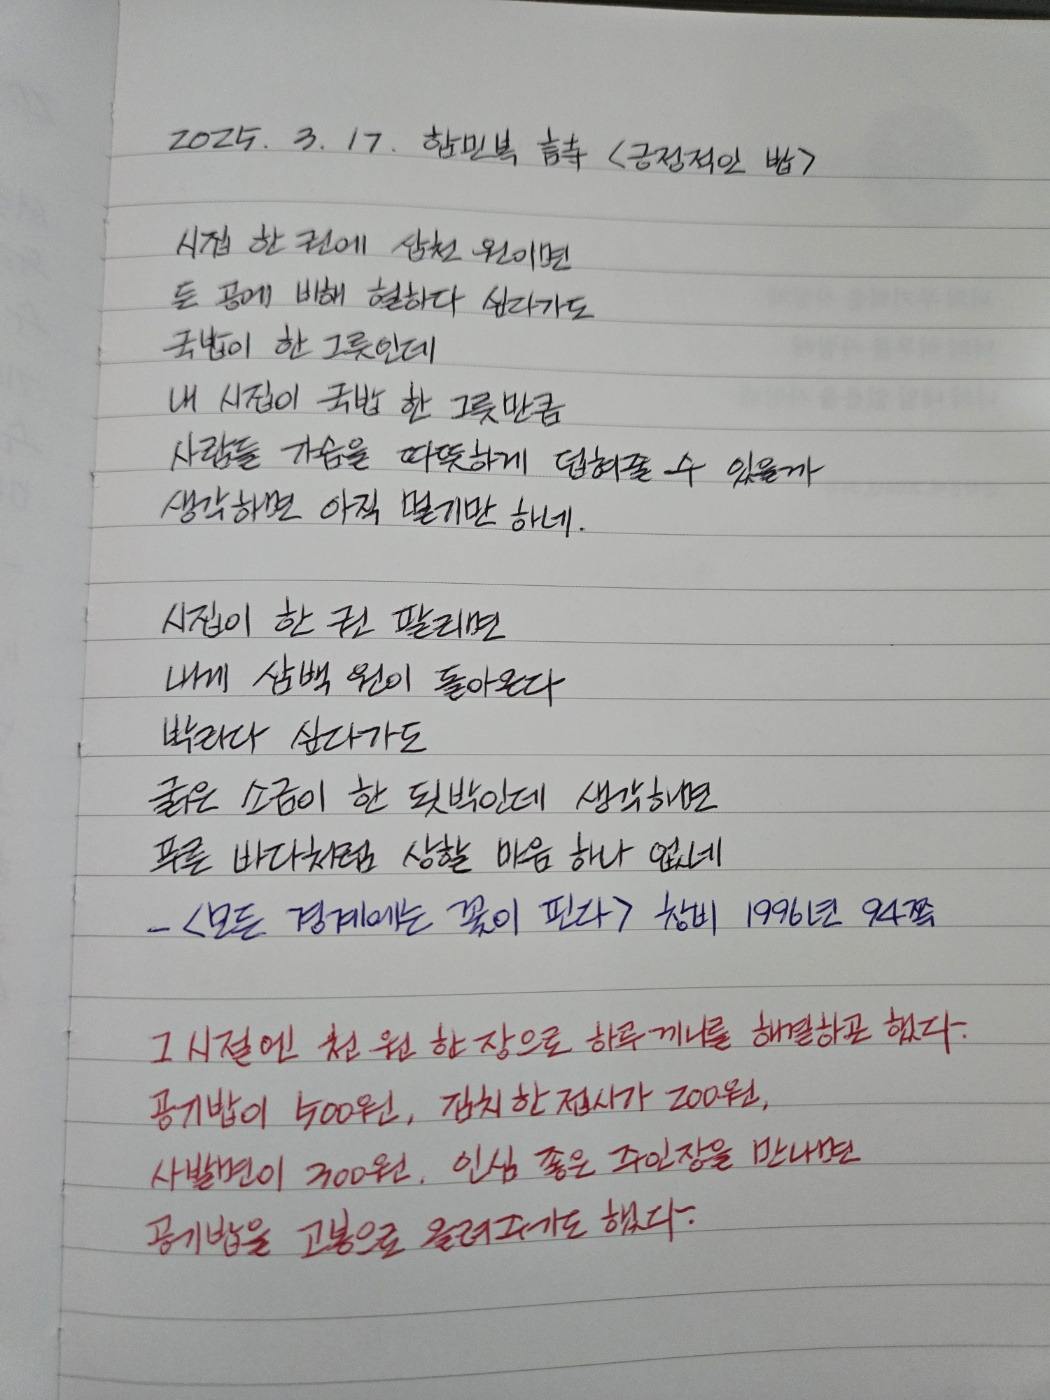 2025. 3. 17. 함민복 詩 <긍정적인 밥>
시집 한 권에 삼천 원이면
든 공에 비해 헐하다 싶다가도
국밥이 한 그릇인데
내 시집이 국밥 한 그릇만큼
사람들 가슴을 따뜻하게 덥혀줄 수 있을까
생각하면 아직 멀기만 하네.
시집이 한 권 팔리면
내게 삼백 원이 돌아온다
박리다 싶다가도
굵은 소금이 한 됫박인데 생각하면
푸른 바다처럼 상할 마음 하나 없네
- <모든 경계에는 꽃이 핀다> 창비 1996년 94쪽
그 시절엔 천 원 한 장으로 하루 끼니를 해결하곤 했다.
공기밥이 500원, 김치 한 접시가 200원,
사발면이 300원. 인심 좋은 주인장을 만나면
공기밥을 고봉으로 올려주기도 했다.